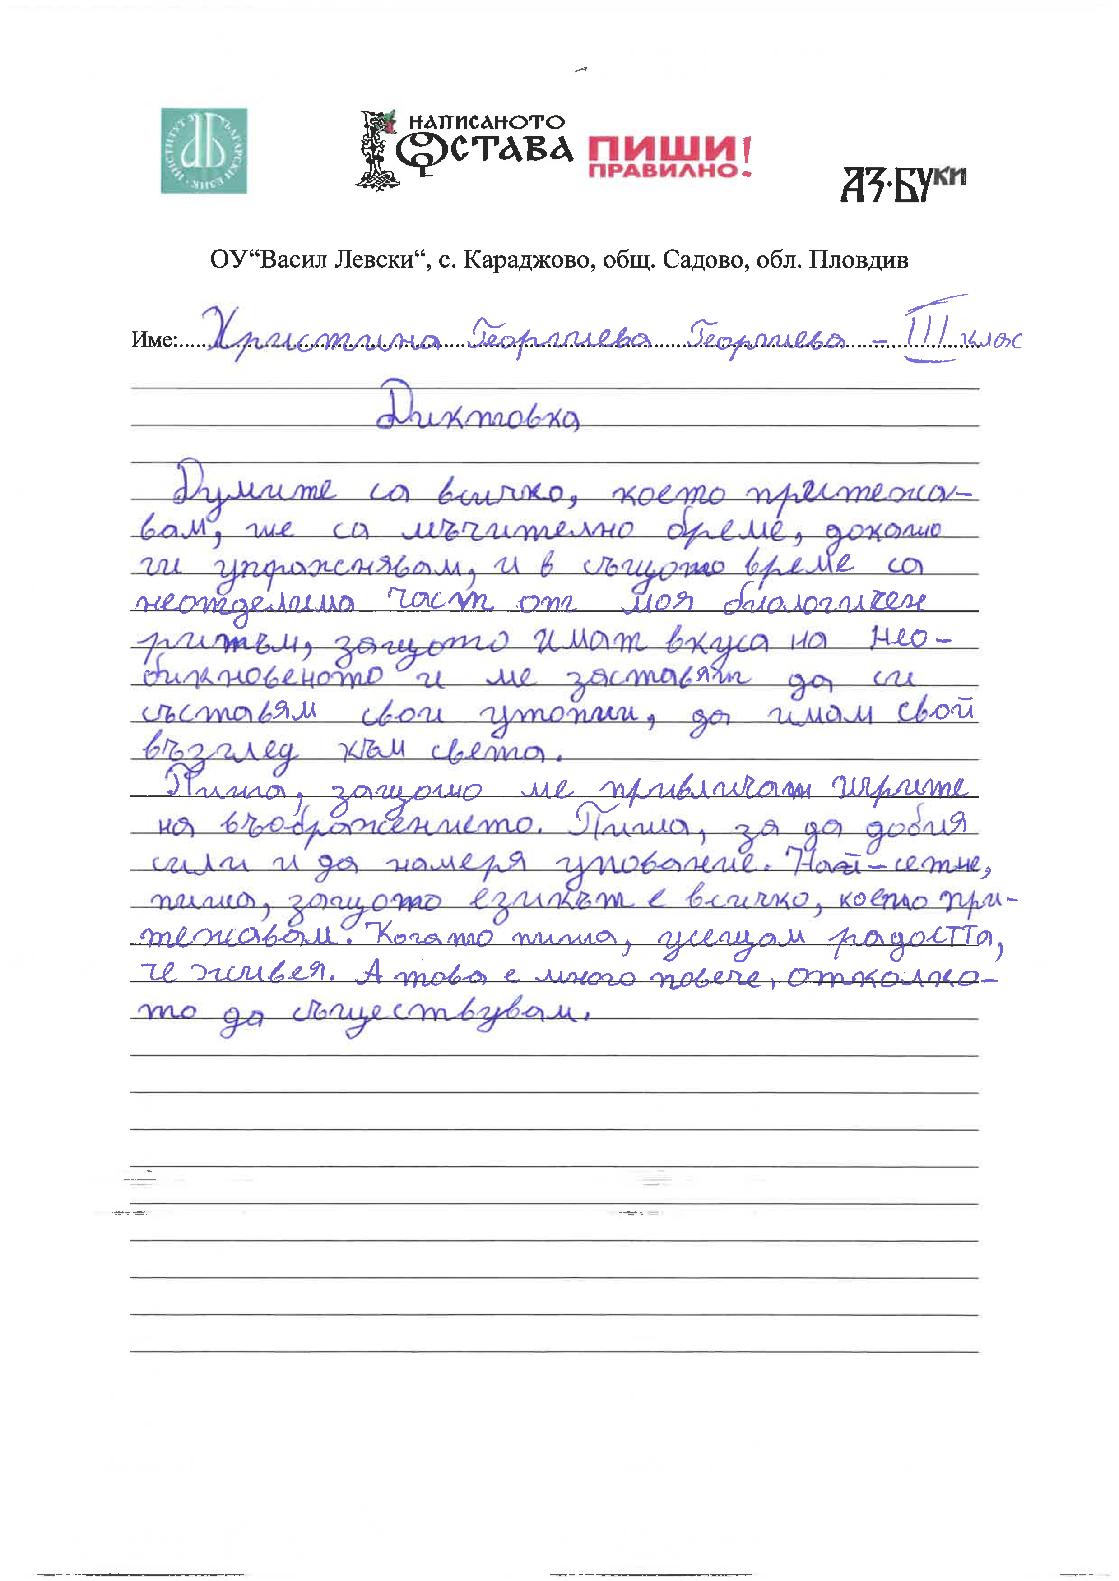 ИНСТИТУТ ЗА БЪЛГАРСКИ ЕЗИК
НАПИСАНОТО
ОСТАВА
ПИШИ!
ПРАВИЛНО.
АЗ·БУКИ
ОУ“Васил Левски“, с. Караджово, общ. Садово, обл. Пловдив
Име: Христина Георгиева Георгиева - III клас
Диктовка
Думите са всичко, което притежа-
вам, те са мъчително бреме, докато
ги упражнявам, и в същото време са
неотделима част от моя биологичен
ритъм, защото имат вкуса на нео-
бикновеното и ме заставят да си
съставям свои утопии, да имам свой
възглед към света.
Пиша, защото ме привличат игрите
на въображението. Пиша, за да добия
сили и да намеря упование. Най-сетне,
пиша, защото езикът е всичко, което при-
тежавам. Когато пиша, усещам радостта,
че живея. А това е много повече, отколко-
то да съществувам.